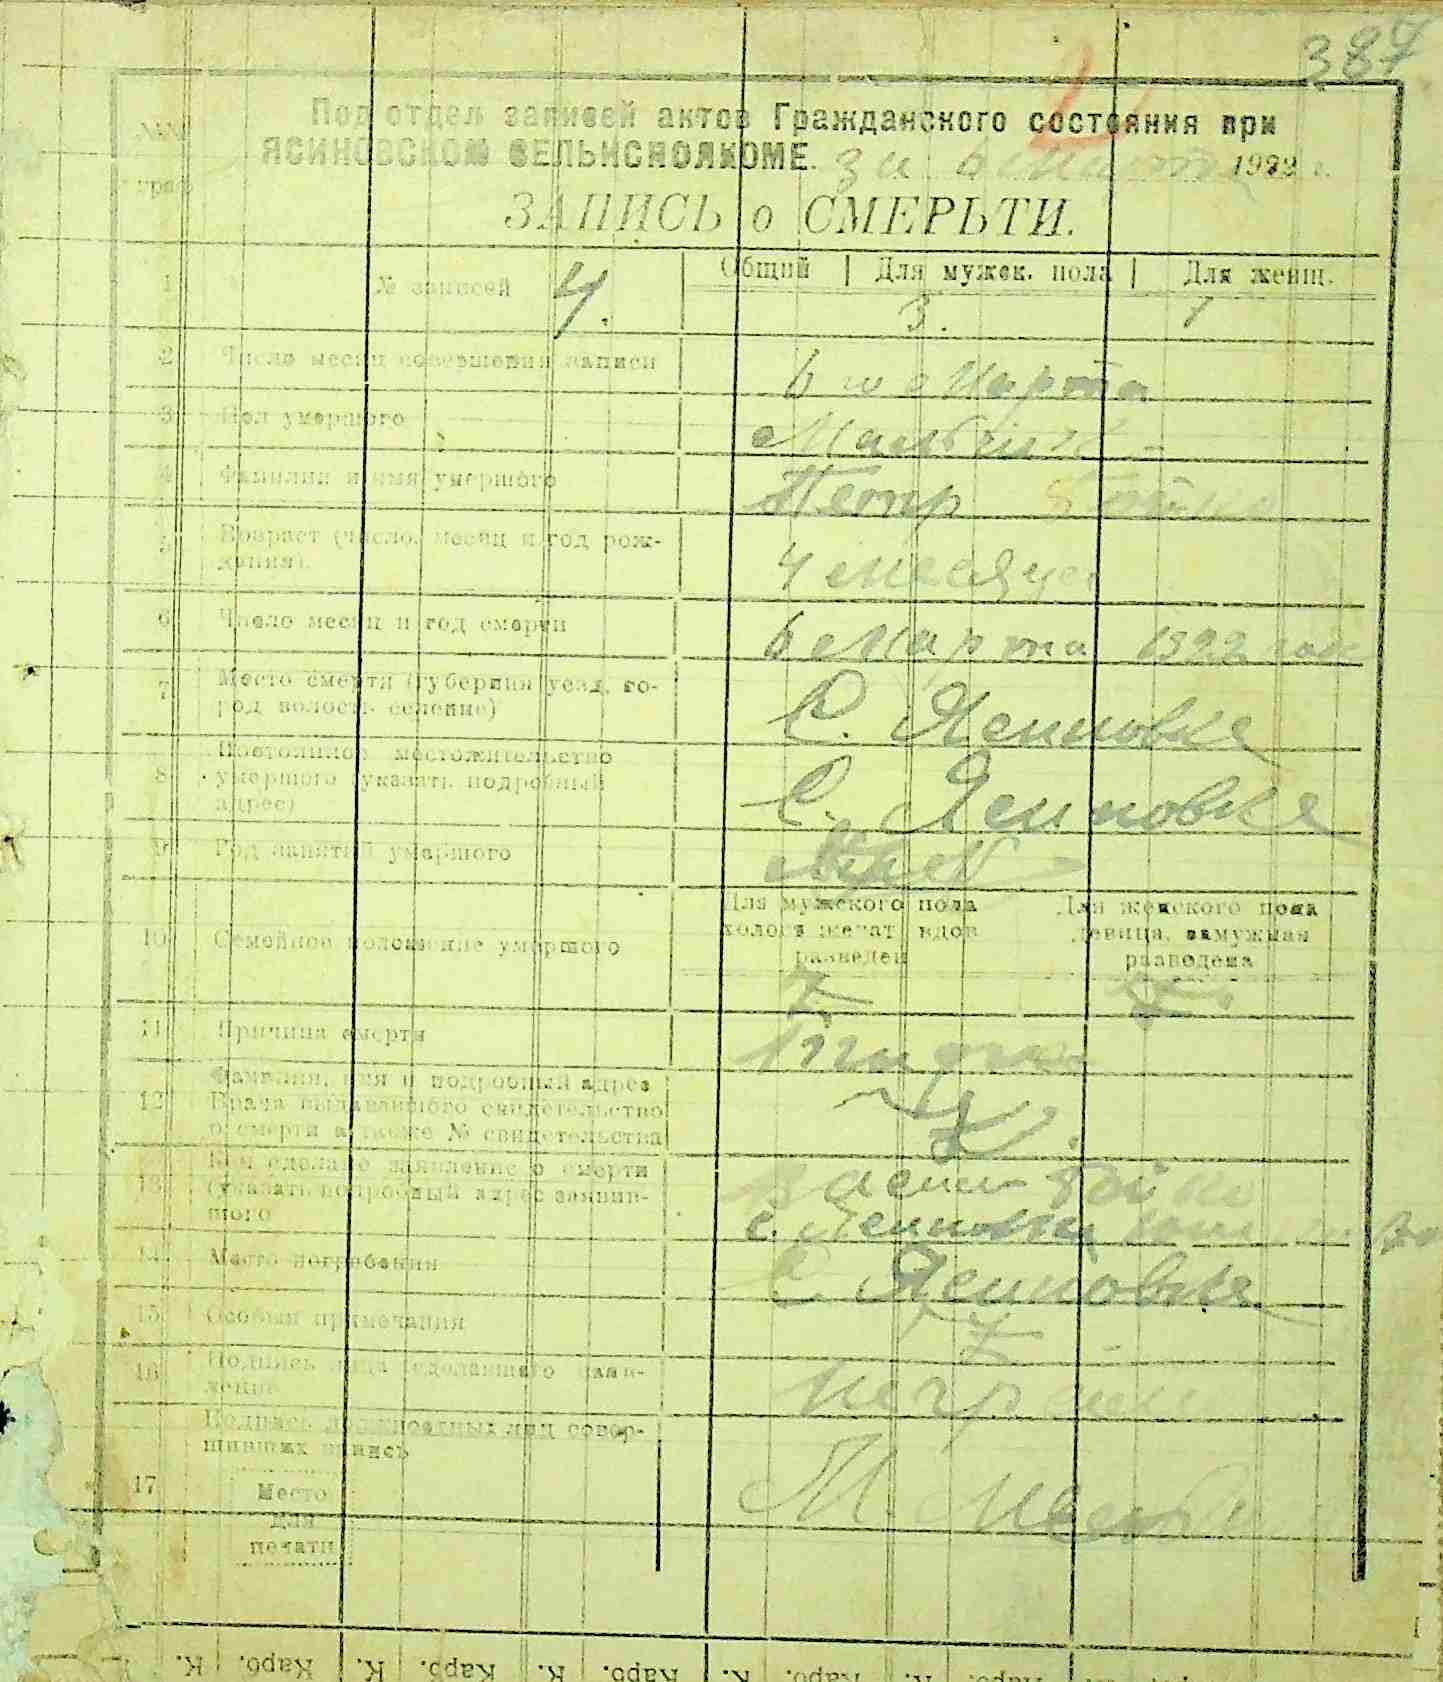 387
Под отдел записей актов Гражданского состояния при
ЯСИНОВСКОМ СЕЛЬИСПОЛКОМЕ. за 6 Марта 1922 г.
ЗАПИСЬ о СМЕРЬТИ.
1 № записей 4. Общий Для мужск. пола Для женщ.
3. 1
2 Число месяц совершения записи 6 го Марта
3 Пол умершого Мальчик
4 Фамилия и имя умершого Петр
5 Возраст (число, месяц и год рож-
дения) 4 месяца
6 Число месяц и год смерти 6 Марта 1922 года
7 Место смерти (губерния уезд, го-
род волость селение) С. Ясиновка
8 Постоянное местожительство
умершого (указать подробный
адрес) С. Ясиновка
9 Род занятий умершого
10 Семейное положение умершого
Для мужского пола
холост женат вдов
разведен
Для женского пола
девица, замужная
разведена
11 Причина смерти
12 Фамилия, имя и подробный адрес
Врача выдававшого свидетельство
о смерти а также № свидетельства
13 Кем сделано заявление о смерти
(указать подробный адрес заявив-
шого
с. Ясиновка
14 Место погребения С Ясиновка
15 Особыя примечания
16 Подпись лица сделавшего заяв-
ление
Подпись должностных лиц совер-
шивших запись
17 Место
для
печати
К. Карб. К. Карб. К. Карб. К. Карб. К. Карб. К.